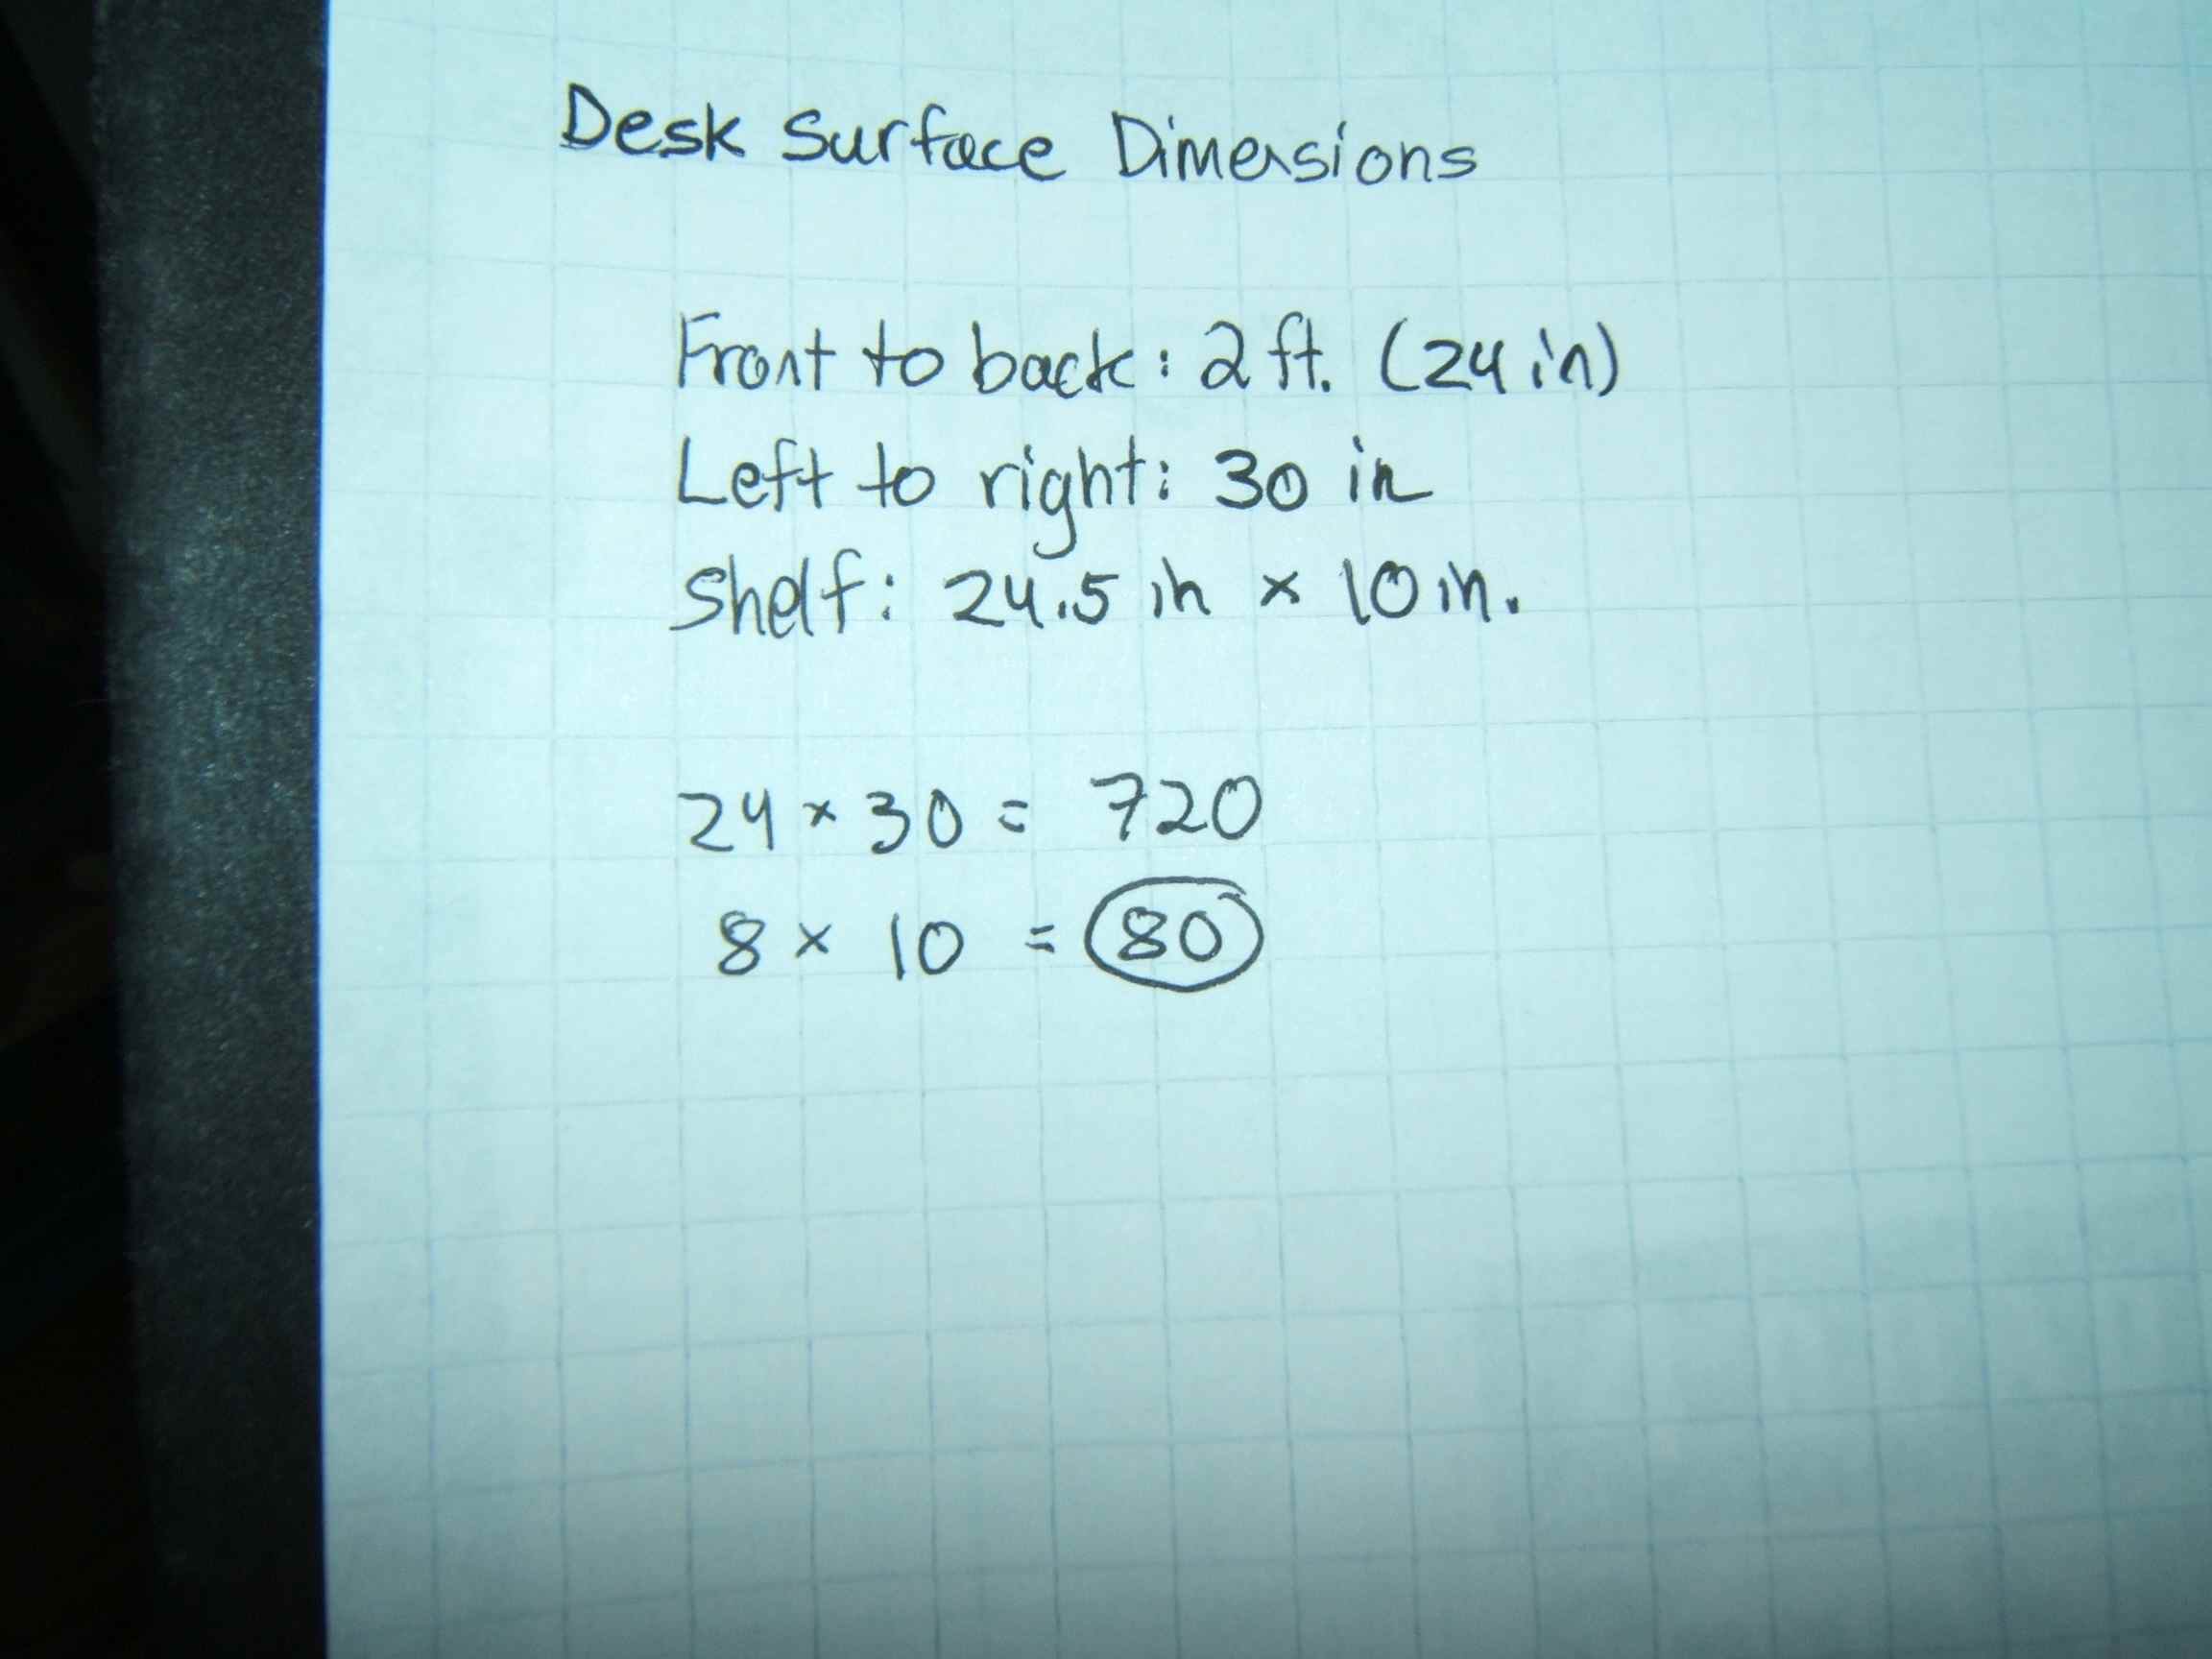 Desk Surface Dimensions
Front to back: 2 ft. (24 in)
Left to right: 30 in
Shelf: 24.5 in x 10 in.
24 x 30 = 720
8 x 10 = 80